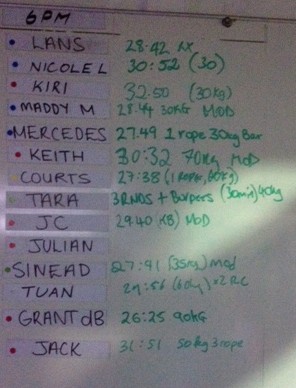 6PM
LANS 28.42 RX
NICOLE L 30:52 (30)
KIRI 32.50 (30kg)
MADDY M 28.44 30KG MOD
MERCEDES 27.49 1 rope 30kg Bar
KEITH 30:32 70kg MOD
COURTS 27:38 (1 ROPE, 60kg)
TARA 3RNDS + Burpees (30min) 40kg
JC 29.40 (KB) MOD
JULIAN
SINEAD 27:41 (35kg) mod
TUAN (60kg)
GRANT dB 26:25 90kg
JACK 31:51 50kg 3 rope